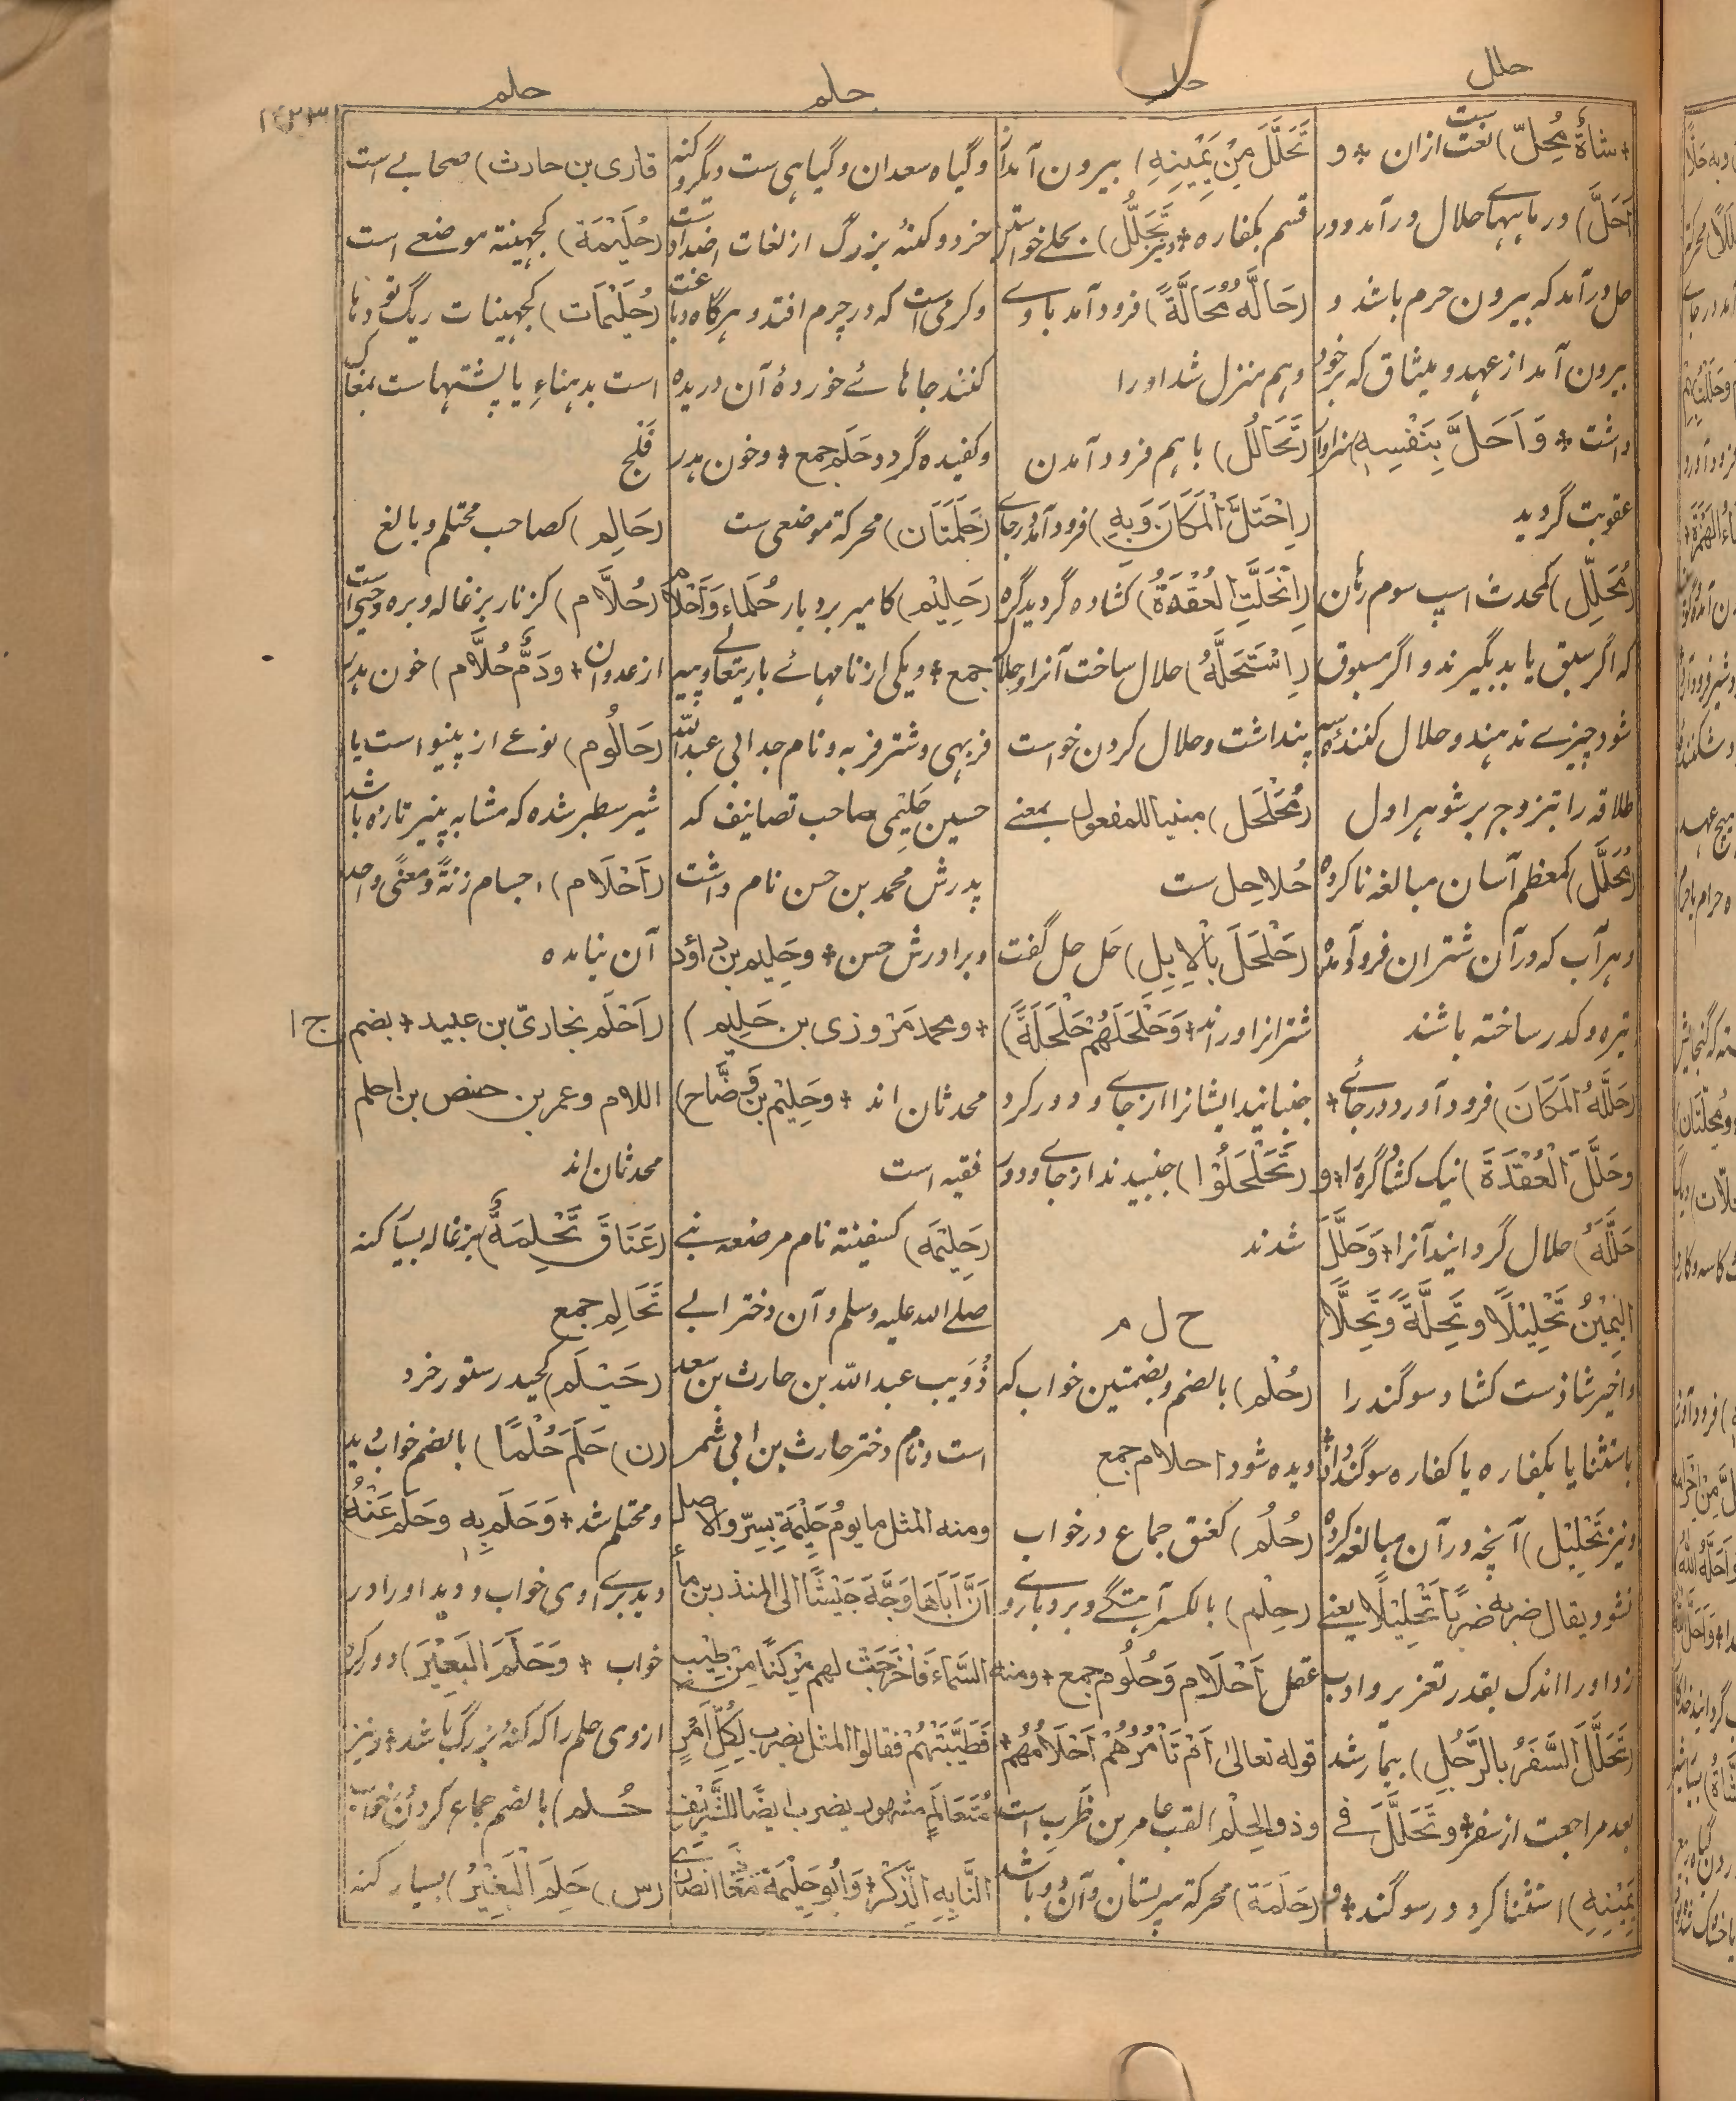 حلل
حل
حلم
حلم
+ شاةٌ مُحِلّ) نعت ست ازان + و
اَحَلَّ) در ماههاے حلال درآمد و در
حل درآمد که بیرون حرم باشد و
بیرون آمد از عهد و میثاق که بر خود
داشت + وَاَحَلَّ بِنَفْسِهٖ) سزاوار
عقوبت گردید
(مُحَلِّل) کمحدث اسپ سوم رهان
که اگر سبق یابد بگیرند و اگر مسبوق
شود چیزے ندهند و حلال کنندۀ سه
طلاقه را بتزوج بر شوهر اول
(مُحَلَّل) کمعظم آسان مبالغه ناکرده
و هر آب که درآن شتران فرود آمده
تیره و کدر ساخته باشند
(حَلَّلَهُ الْمَكَانَ) فرود آورد در جاۓ +
وحَلَّلَ الْعُقْدَةَ) نیک کشاد گره را + و
حَلَّلَهٗ) حلال گردانید آنرا + وَحَلَّلَ
الیَمِیْنَ تَحْلِیْلًا وتَحِلَّةً وَتَحِلًّا
واخیر شاذست کشاد سوگند را
باستثنا یا بکفاره یا کفاره سوگند داد
و نیز تَحْلِیْل) آنچه درآن مبالغه کرده
نشود یقال ضربه ضربًا تَحْلِیْلًا یعنے
زد اورا اندک بقدر تعزیر و ادب
(تَحَلَّلَ السَّفَرُ بالرَّجُلِ) بیمار شد
بعد مراجعت از سفر + وتَحَلَّلَ فے
یَمِیْنِهٖ) استثنا کرد در سوگند + و
تَحَلَّلَ مِنْ یَمِیْنِهٖ) بیرون آمد از
قسم بکفاره + و نیز تَحَلُّل) بحلے خواستن
(حَالَّهُ مُحَالَّةً) فرود آمد با وے
و هم منزل شد اورا
(تَحَالُل) باهم فرود آمدن
(اِحْتَلَّ الْمَكَانَ وَبِهٖ) فرود آمد در جاے
(اِنْحَلَّتِ الْعُقْدَةُ) کشاده گردید گره
(اِسْتَحَلَّهٗ) حلال ساخت آنرا و حلال
پنداشت و حلال کردن خواست
(مُحَلْحَل) مبنیا للمفعول بمعنے
حُلاحِل ست
(حَلْحَلَ بِالْاِبِلِ) حَل حَل گفت
شترانرا و راند + وَحَلْحَلَهُمْ حَلْحَلَةً)
جنبانید ایشانرا از جاے و دور کرد
(تَحَلْحَلُوْا) جنبیدند از جاے و دور
شدند
ح ل م
(حُلْم) بالضم و بضمتین خواب که
دیده شود احلام جمع
(حُلُم) کعنق جماع در خواب
(حِلْم) بالکسر آهستگے و بردبارے و
عقل اَحْلَام وَحُلُوم جمع + ومنه
قوله تعالیٰ اَمْ تَاْمُرُهُمْ اَحْلَامُهُمْ +
وذو الحِلْم) لقب عامر بن ظَرِب است
(حَلَمَة) محرکة سر پستان و آن دو باشد
و گیاه سعدان و گیاهی ست دیگر و کنه
خرد و کنۀ بزرگ از لغات اضداد ست
و کرمی است که در چرم افتد و هرگاه دباغت
کنند جاهاے خوردۀ آن دریده
و کفیده گردد حَلَم جمع + و خون هدر
(حَلَمَتَان) محرکة موضعی ست
(حَلِیْم) کامیر بردبار حُلَماء وَاَحْلَام
جمع + و یکی از نامهاے باریتعالے و پیه
فربهی و شتر فربه و نام جد ابی عبدالله
حسین حَلِیْمی صاحب تصانیف که
پدرش محمد بن حسن نام داشت
و برادرش حسن + وحَلِیم بن داؤد
+ و محمد مَرْوَزی بن حَلِیم)
محدثان اند + وحَلِیْم بن وَضَّاح)
فقیه است
(حَلِیْمَة) کسفینة نام مرضعه نبے
صلے الله علیه وسلم و آن دختر ابے
ذُوَیب عبدالله بن حارث بن سعد
است و نام دختر حارث بن ابی شمر
ومنه المثل ما یوم حَلِیْمَة بِسِرّ والاصل
اَنَّ اَبَاهَا وَجَّهَ جَیْشًا الی المنذر بن ماء
السَّمَاءِ فَاَخْرَجَتْ لهم مِرْكَنًا مِنْ طِیْبٍ
فَطَیَّبَتْهُمْ فقالوا المثل یضرب لِكُلِّ اَمْرٍ
مُتَعَالَمٍ مشهور یضرب ایضًا للشَّرِیْف
النَّابِهِ الذِّكْرِ + وَاَبُو حَلِیْمَة مُعَاذ انصارے
قاری بن حارث) صحابے است
(حُلَیْمَة) کجهینة موضعے است
(حُلَیْمَات) کجهینات ریگ توده ها
است بدهناء یا پشتهاست بمغاک
فَلْج
(حَالِم) کصاحب محتلم و بالغ
(حُلَّام) کزنار بزغاله و بره وحشی است
از عدوان + ودَمٌ حُلَّام) خون هدر
(حَالُوم) نوعے از پینو است یا
شیر سطبر شده که مشابه پنیر تازه باشد
(اَحْلَام) اجسام زنةً و معنًى واحد
آن نیامده
(اَحْلَم بخاریّ بن عبید + بضم ج ا
اللام وعمر بن حفص بن احلم
محدثان اند
(عَنَاقٌ تَحْلِمَةٌ) بزغاله بسیار کنه
تَحَالِم جمع
(حَیْلَم) کحیدر ستور خرد
(ن) حَلَمَ حُلْمًا) بالضم خواب دید
و محتلم شد + وَحَلَمَ بِهٖ وحَلَمَ عَنْهُ
دید براے اوی خواب و دید اورا در
خواب + وَحَلَمَ الْبَعِیْرَ) دور کرد
ازوی حلم را که کنۀ بزرگ باشد + و نیز
حُلم) بالضم جماع کردن در خواب
(س) حَلِمَ الْبَعِیْرُ) بسیار کنه